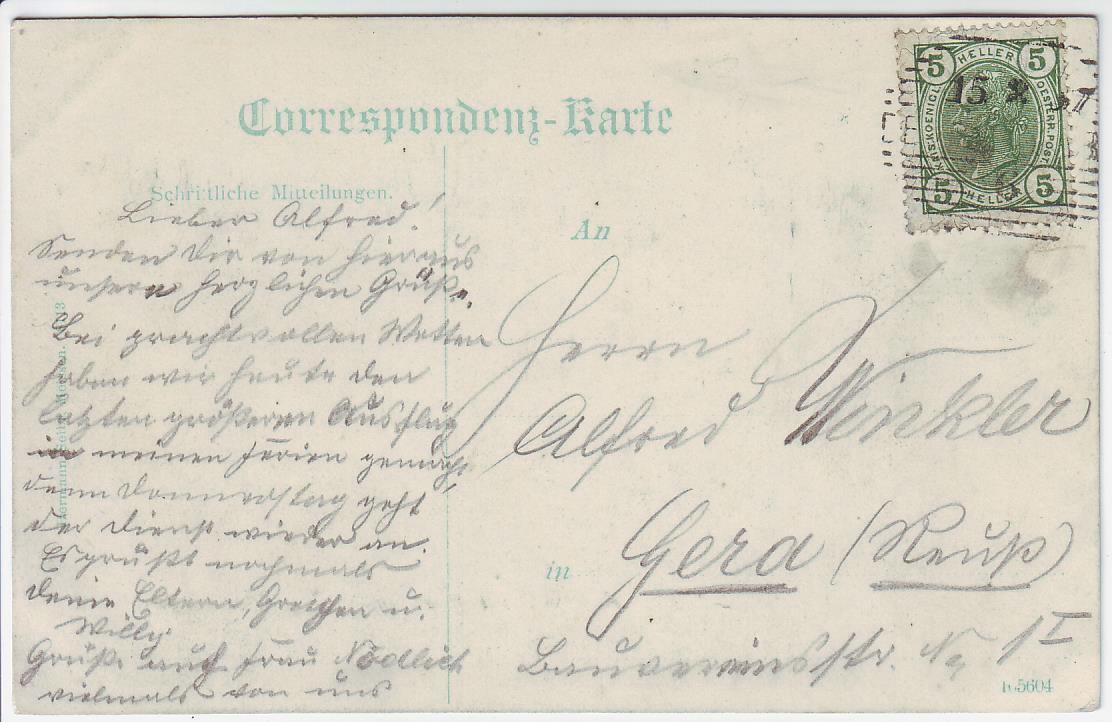 Correspondenz-Karte
Schriftliche Mitteilungen.
Lieber Alfred!
Senden Dir von hier aus
unsern herzlichen Grüße.
Bei prachtvollen Wetter
haben wir heute den
letzten größeren Ausflug
in meinen Ferien gemacht,
denn Donnerstag geht
der Dienst wieder an.
Es grüßt nochmals
deine Eltern, Gretchen u.
Willy
Grüße auch Frau Nödlich
vielmals von uns
An
Herrn
Alfred Winkler
in Gera (Reuß)
Bauvereinsstr. No 1 I
5 HELLER 5
KAIS. KOENIGL. OESTERR. POST
5 HELLER 5
15 X
Hermann Seib Meissen.
5604